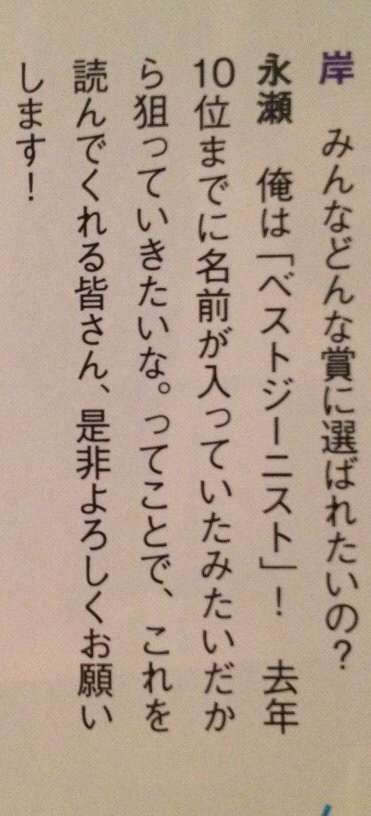 岸　みんなどんな賞に選ばれたいの？
永瀬　俺は「ベストジーニスト」！　去年
10位までに名前が入っていたみたいだか
ら狙っていきたいな。ってことで、これを
読んでくれる皆さん、是非よろしくお願い
します！